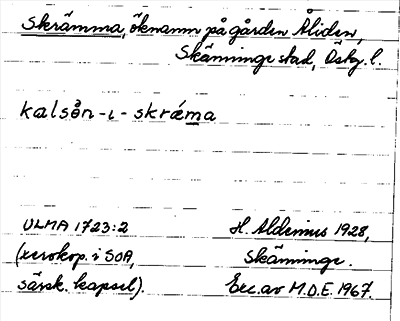 Skrämma, öknamn på gården Åliden,
Skänninge stad, Östg. l.
kalsån-ι-skrǽma
ULMA 1723:2
H. Aldenius 1928,
(xerokop. i SOA,
Skänninge.
särsk. kapsel).
Exc. av M.D.E. 1967.